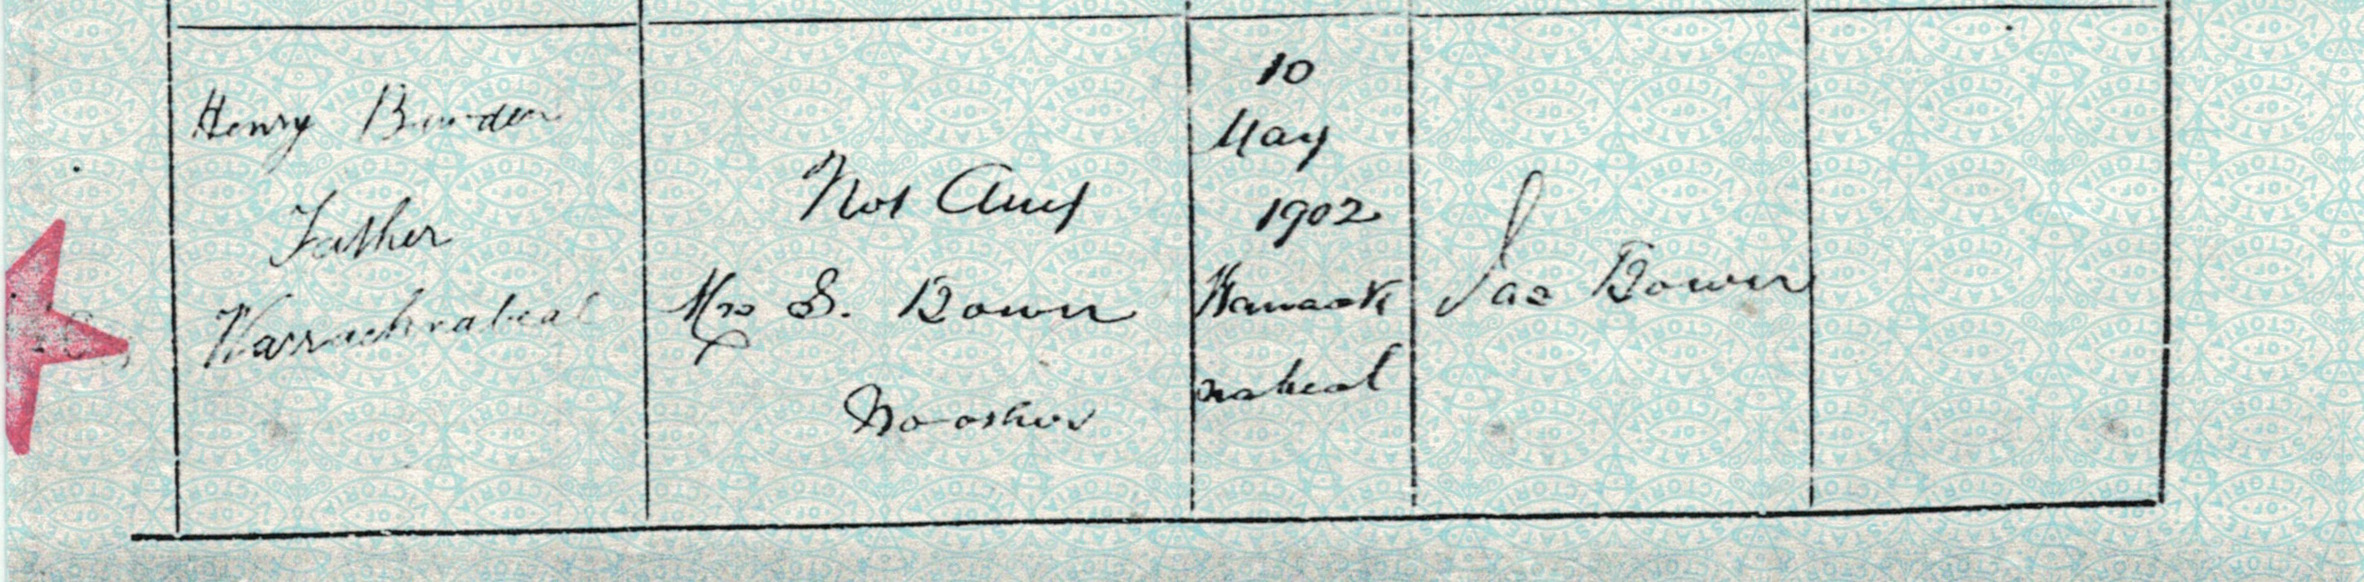 Henry Bowden
Father
Warracknabeal
Not Any
Mrs S. Bown
No other
10
May
1902
Warrack
nabeal
Jas Bown